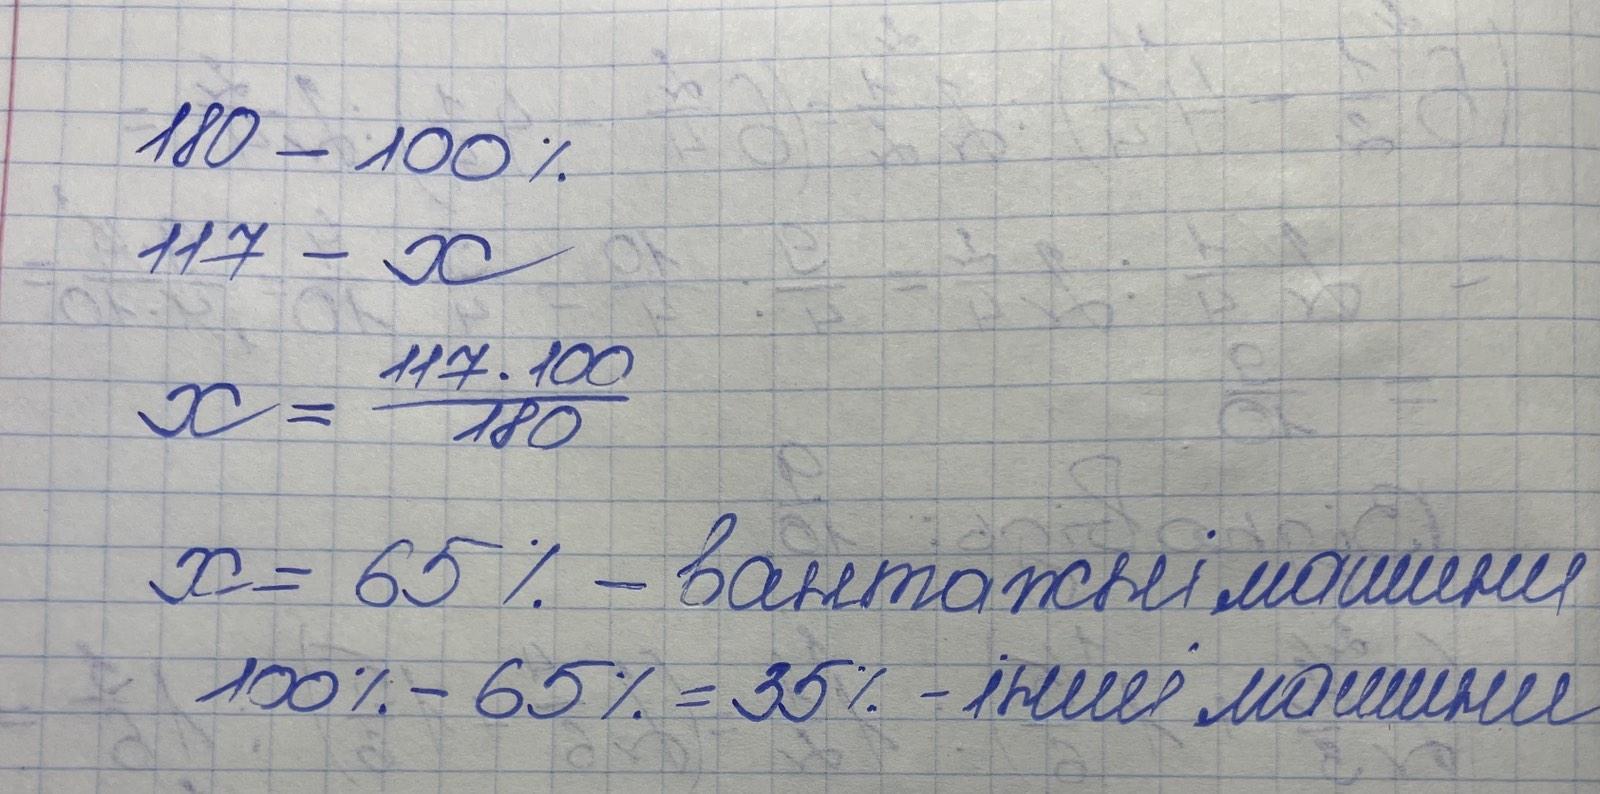 180 – 100%
117 – x
x = \frac{117 · 100}{180}
x = 65% – вантажні машини
100% – 65% = 35% – інші машини